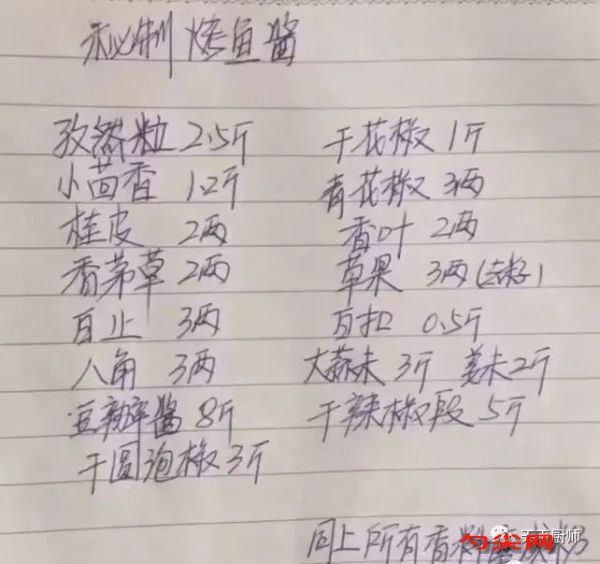 秘制 烤鱼酱
孜然粒 2.5斤 干花椒 1斤
小茴香 1.2斤 青花椒 3两
桂皮 2两 香叶 2两
香茅草 2两 草果 3两(去籽)
百止 3两 百扣 0.5斤
八角 3两 大蒜末 3斤 姜末2斤
豆瓣酱 8斤 干辣椒段 5斤
干圆泡椒 3斤
同上所有香料 成粉
天天厨师
勺尖网